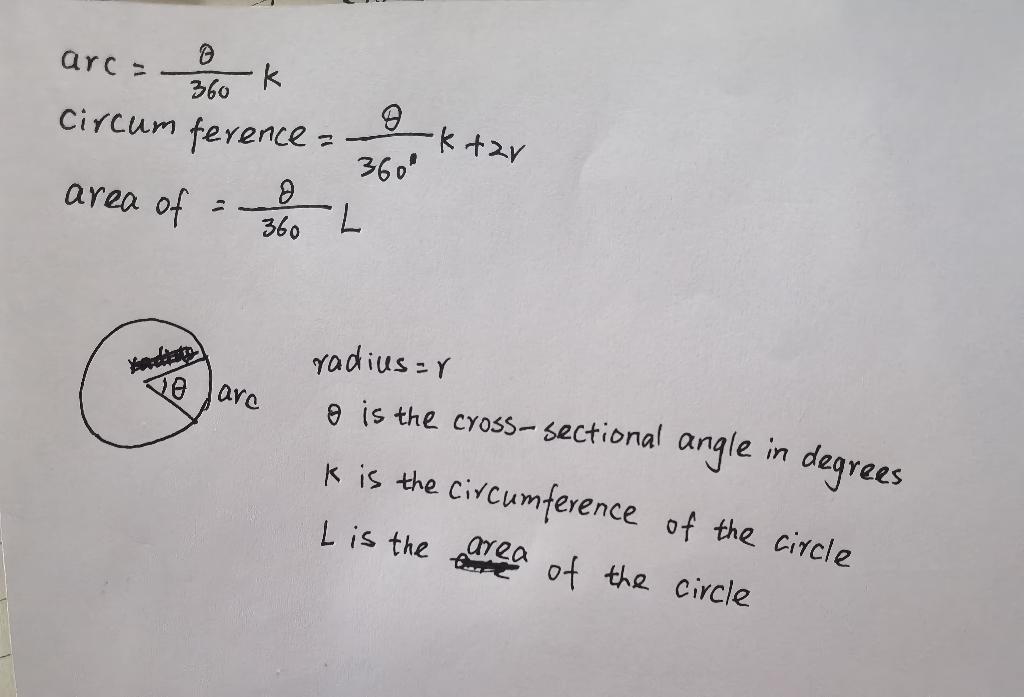 arc = θ/360 k
circumference = θ/360° k + 2r
area of = θ/360 L
θ arc
radius = r
θ is the cross-sectional angle in degrees
K is the circumference of the circle
L is the area of the circle